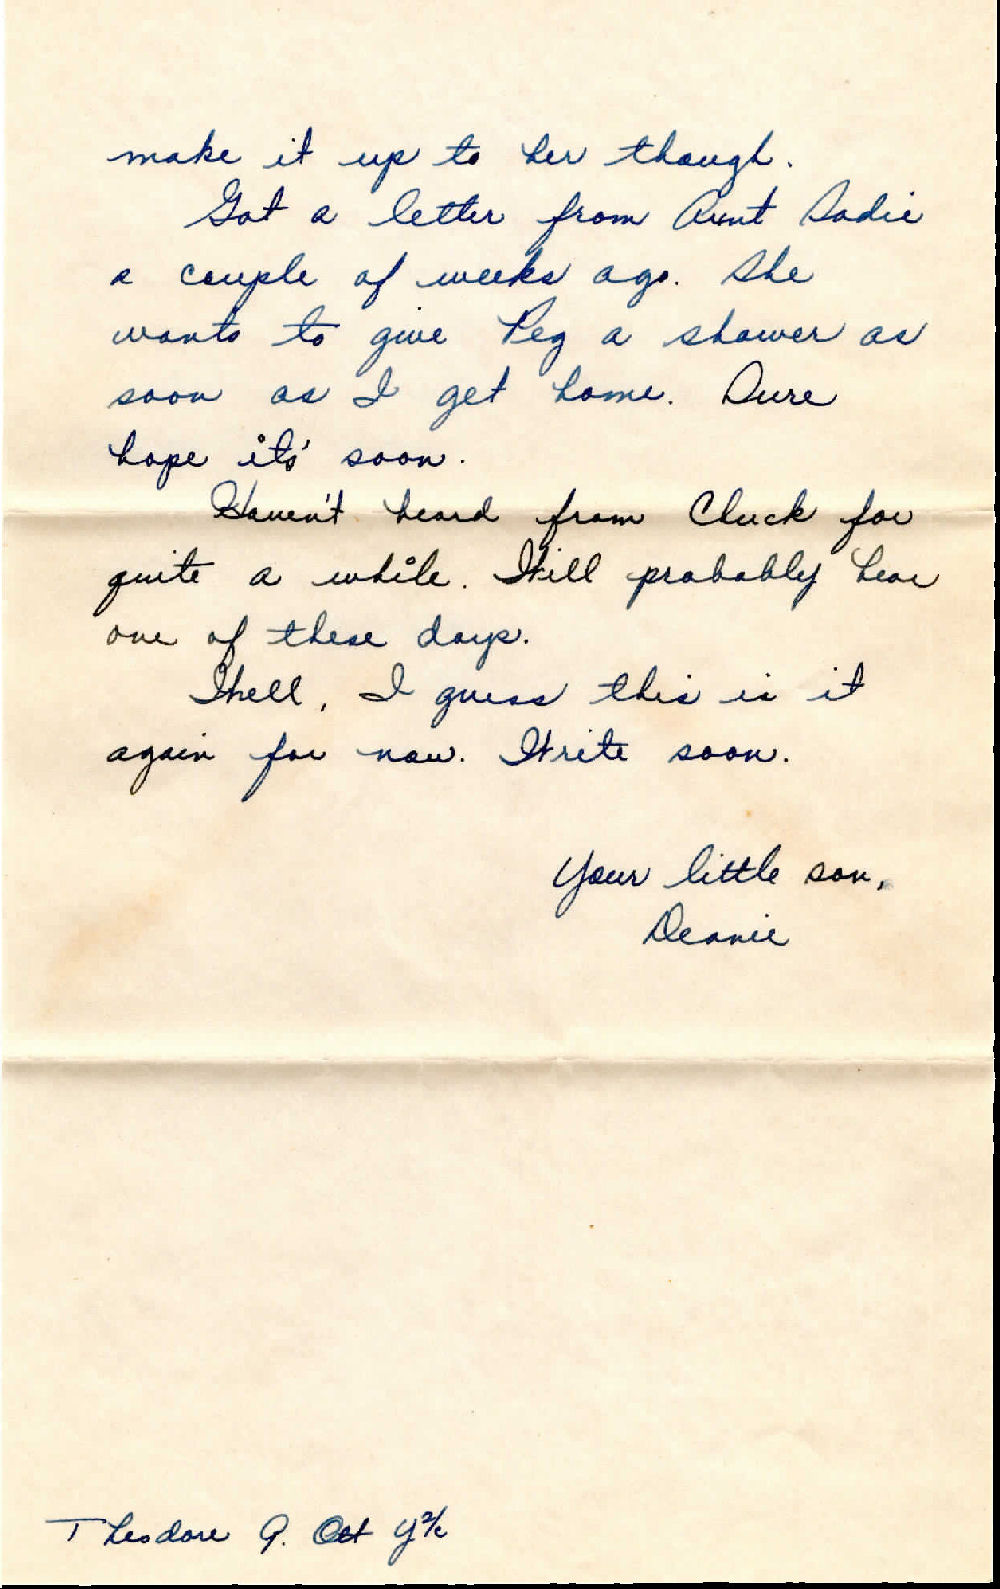 make it up to her though.
Got a letter from Aunt Sadie
a couple of weeks ago. She
wants to give Peg a shower as
soon as I get home. Sure
hope it's soon.
Haven't heard from Chuck for
quite a while. Will probably hear
one of these days.
Well, I guess this is it
again for now. Write soon.
Your little son,
Deanie
Theodore A. Ott Y2/c